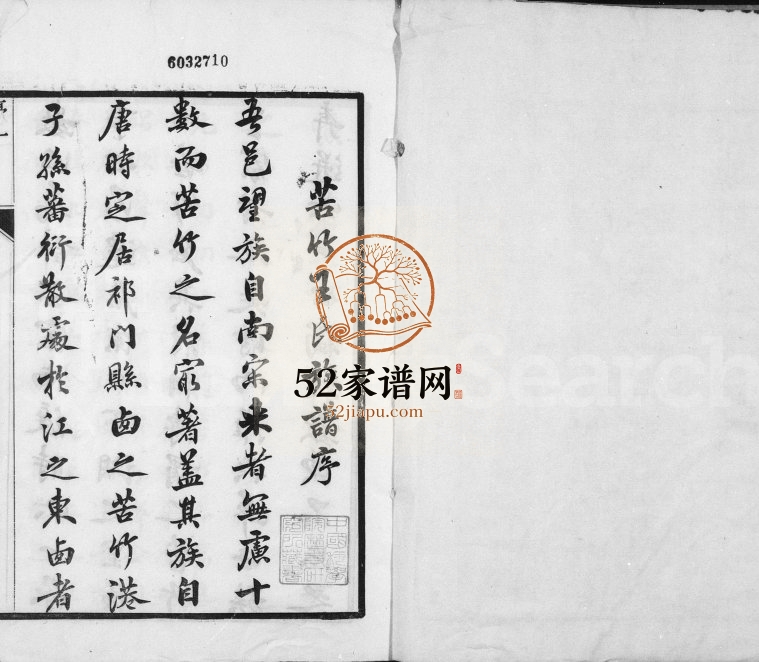 6032710
苦竹王氏族譜序
吾邑望族自南宋來者無慮十
數而苦竹之名㝡著蓋其族自
唐時定居祁門縣卤之苦竹港
子孫蕃衍散處扵江之東卤者
52家谱网
52jiapu.com
Search